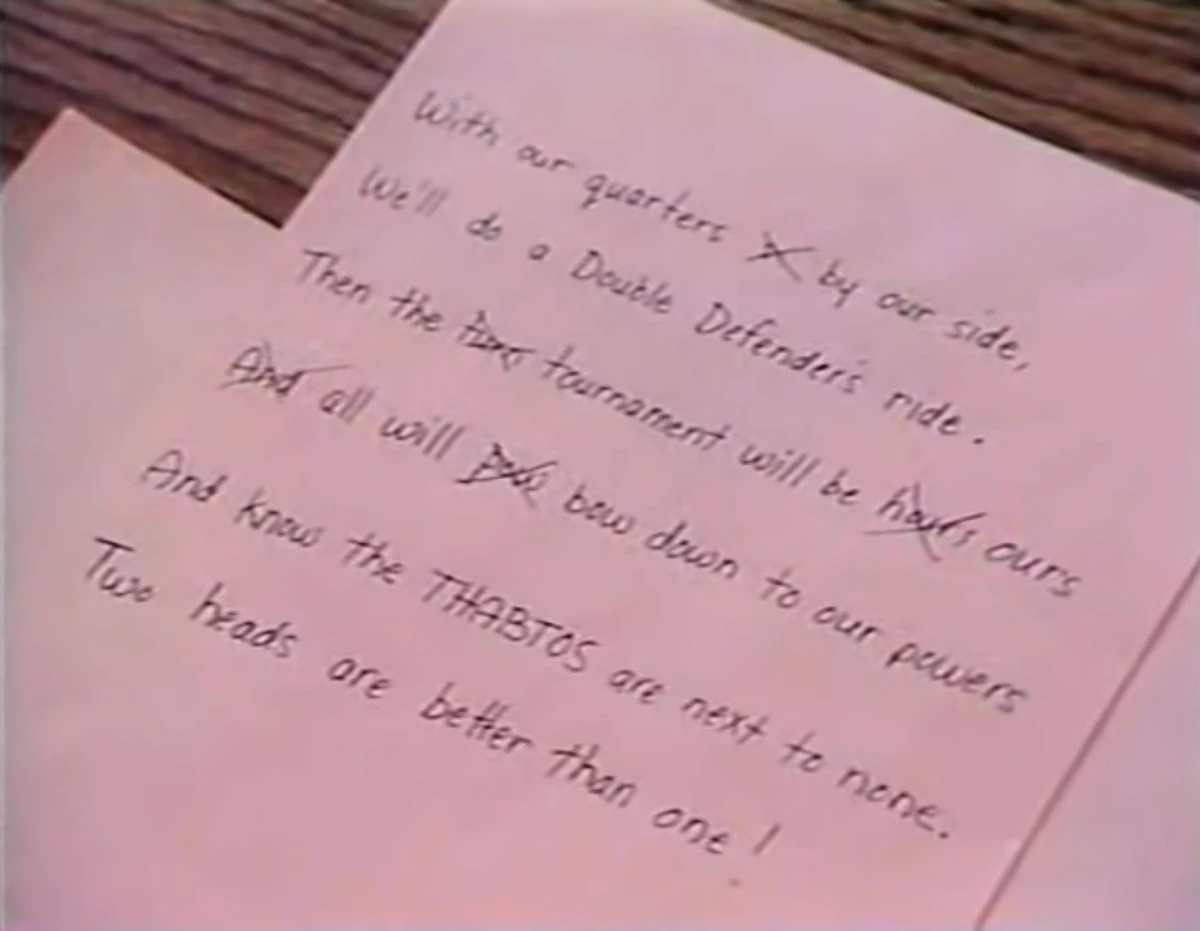 With our quarters by our side,
We'll do a Double Defender's ride.
Then the tournament will be hours ours
And all will bow bow down to our powers
And know the THABTOS are next to none.
Two heads are better than one!